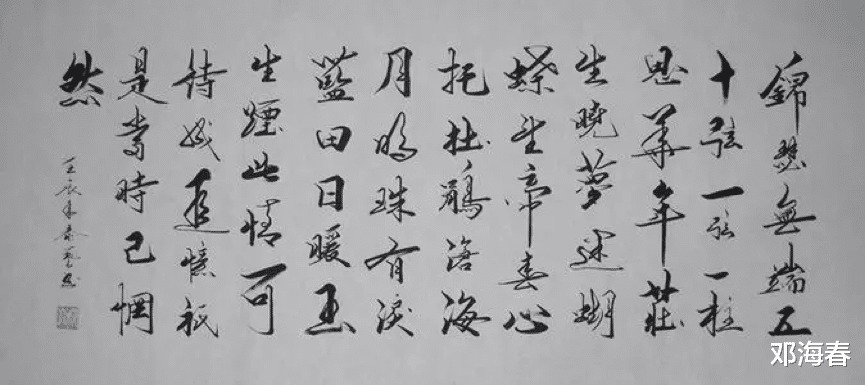 錦瑟無端五
十弦一弦一柱
思華年莊
生曉夢迷蝴
蝶望帝春心
托杜鵑滄海
月明珠有淚
藍田日暖玉
生煙此情可
待成追憶祇
是當時已惘
然
壬辰年春
邓海春